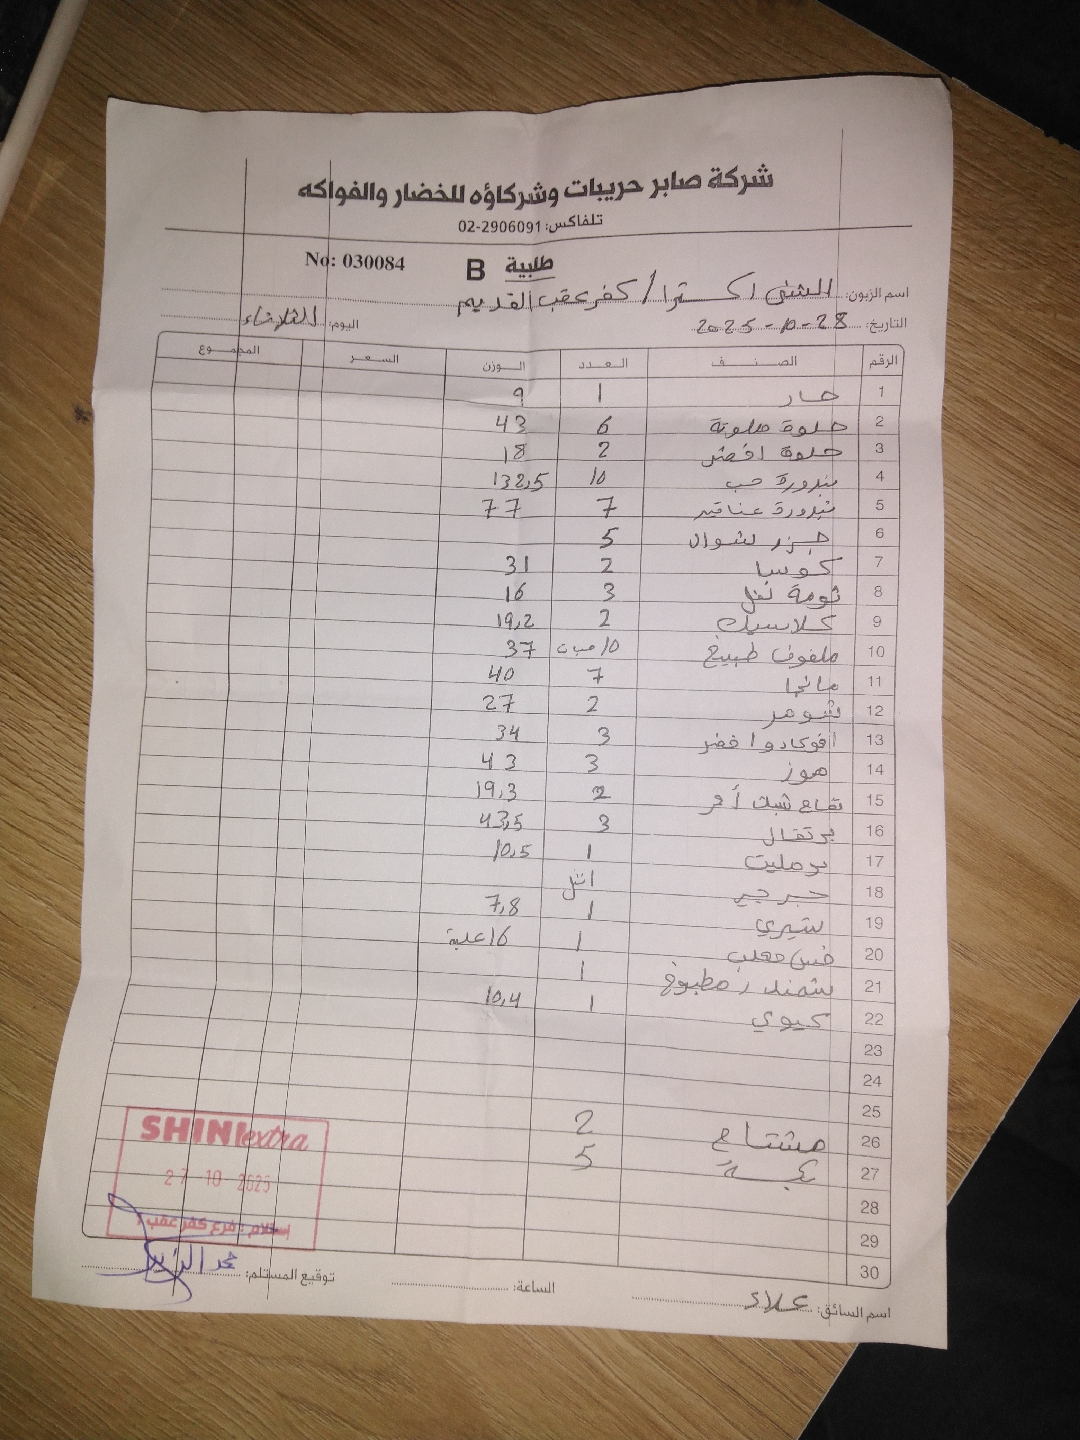 شركة صابر حريبات وشركاؤه للخضار والفواكه
تلفاكس: 02-2906091
No: 030084 طلبية B
اسم الزبون: الشني اكسترا / كفر عقب القديم
التاريخ: 28-10-2025 اليوم: الثلاثاء
الرقم الصنف العدد الوزن السعر المجموع
1 حار 1 9
2 حلوة ملونة 6 43
3 حلوة اخضر 2 18
4 بندورة حب 10 132,5
5 بندورة عناقيد 7 77
6 جزر شوال 5
7 كوسا 2 31
8 ثومة تفل 3 16
9 كلاسيك 2 19,2
10 ملفوف طبيخ 10 حبات 37
11 مانجا 7 40
12 شومر 2 27
13 افوكادو اخضر 3 34
14 موز 3 43
15 تفاح أحمر 2 19,3
16 برتقال 3 43,5
17 بومليت 1 10,5
18 جرجير 1
19 شيري 1 7,8
20 خس 1 16 علبة
21 شمندر مطبوخ 1
22 كيوي 1 10,4
23
24
25
26 مشتاح 2
27 5
28
29
30
SHINI extra
27 10 2025
استلام: فرع كفر عقب
اسم السائق: علاء الساعة: توقيع المستلم: محمد